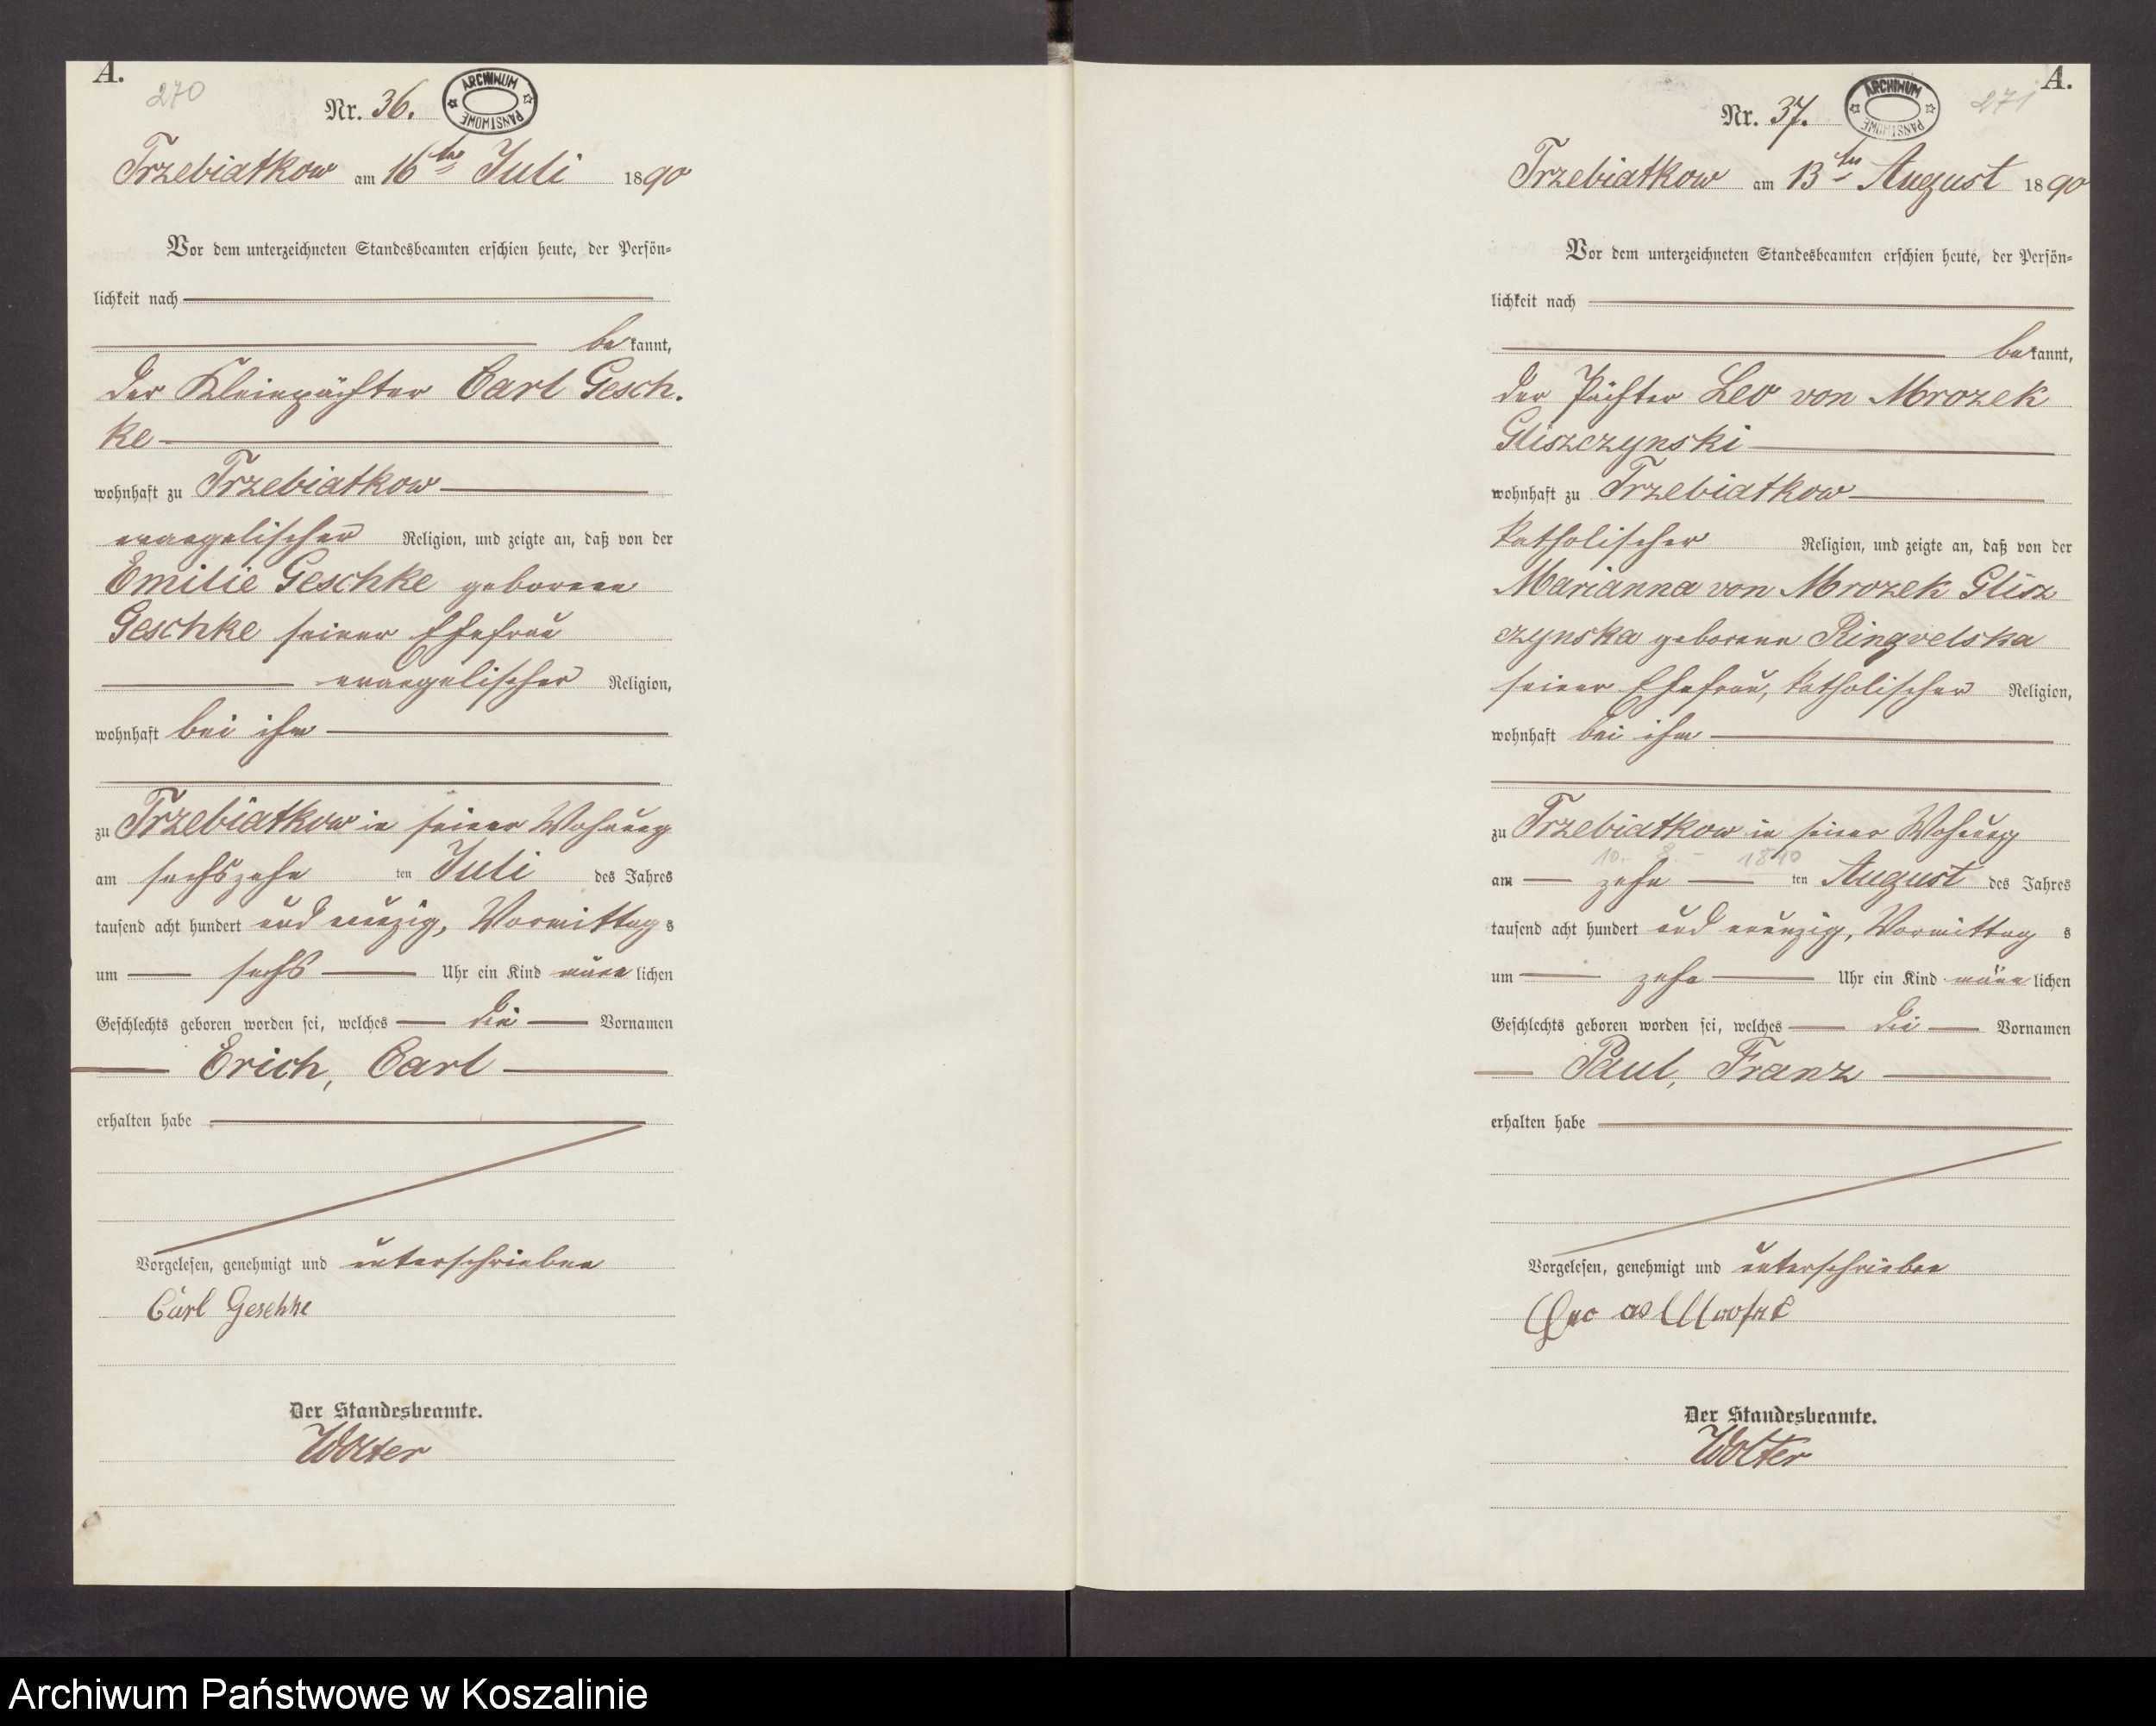 A.
270
Nr. 36.
ARCHIWUM PAŃSTWOWE
Trzebiatkow am 16ten Juli 1890
Vor dem unterzeichneten Standesbeamten erschien heute, der Persön=
lichkeit nach
be kannt,
der Kleinpächter Carl Gesch.
ke
wohnhaft zu Trzebiatkow
evangelischer Religion, und zeigte an, daß von der
Emilie Geschke geborenen
Geschke seiner Ehefrau
evangelischer Religion,
wohnhaft bei ihm
zu Trzebiatkow in seiner Wohnung
am sechszehn ten Juli des Jahres
tausend acht hundert und neunzig, Vormittag s
um sechs Uhr ein Kind männ lichen
Geschlechts geboren worden sei, welches die Vornamen
Erich, Carl
erhalten habe
Vorgelesen, genehmigt und unterschrieben
Carl Geschke
Der Standesbeamte.
Wolter
A.
271
Nr. 37.
ARCHIWUM PAŃSTWOWE
Trzebiatkow am 13ten August 1890
Vor dem unterzeichneten Standesbeamten erschien heute, der Persön=
lichkeit nach
be kannt,
der Pächter Leo von Mrozek
Gliszczynski
wohnhaft zu Trzebiatkow
katholischer Religion, und zeigte an, daß von der
Marianna von Mrozek Glisz
czynska geborenen Ringvelska
seiner Ehefrau, katholischer Religion,
wohnhaft bei ihm
zu Trzebiatkow in seiner Wohnung
10. 8. - 1890
am zehn ten August des Jahres
tausend acht hundert und neunzig, Vormittag s
um zehn Uhr ein Kind männ lichen
Geschlechts geboren worden sei, welches die Vornamen
Paul, Franz
erhalten habe
Vorgelesen, genehmigt und unterschrieben
Der Standesbeamte.
Wolter
Archiwum Państwowe w Koszalinie